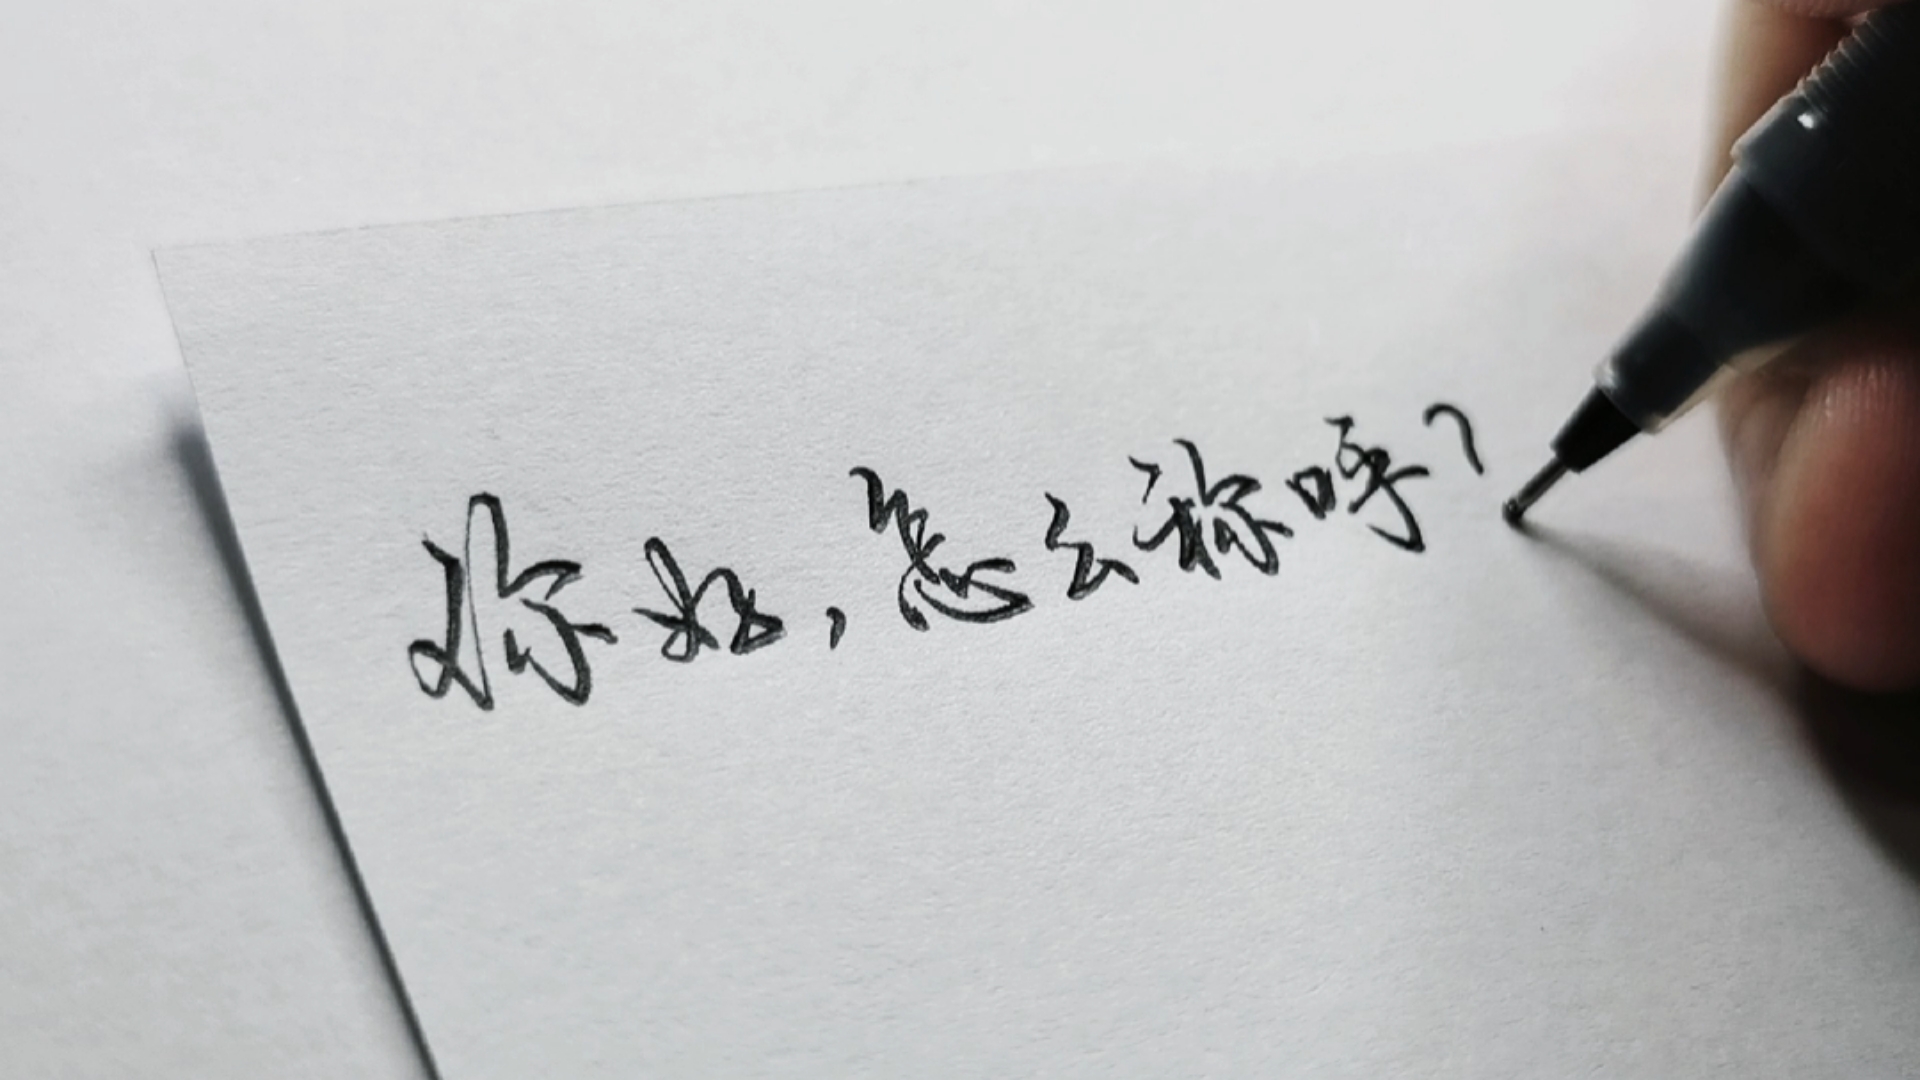 你好,怎么称呼?